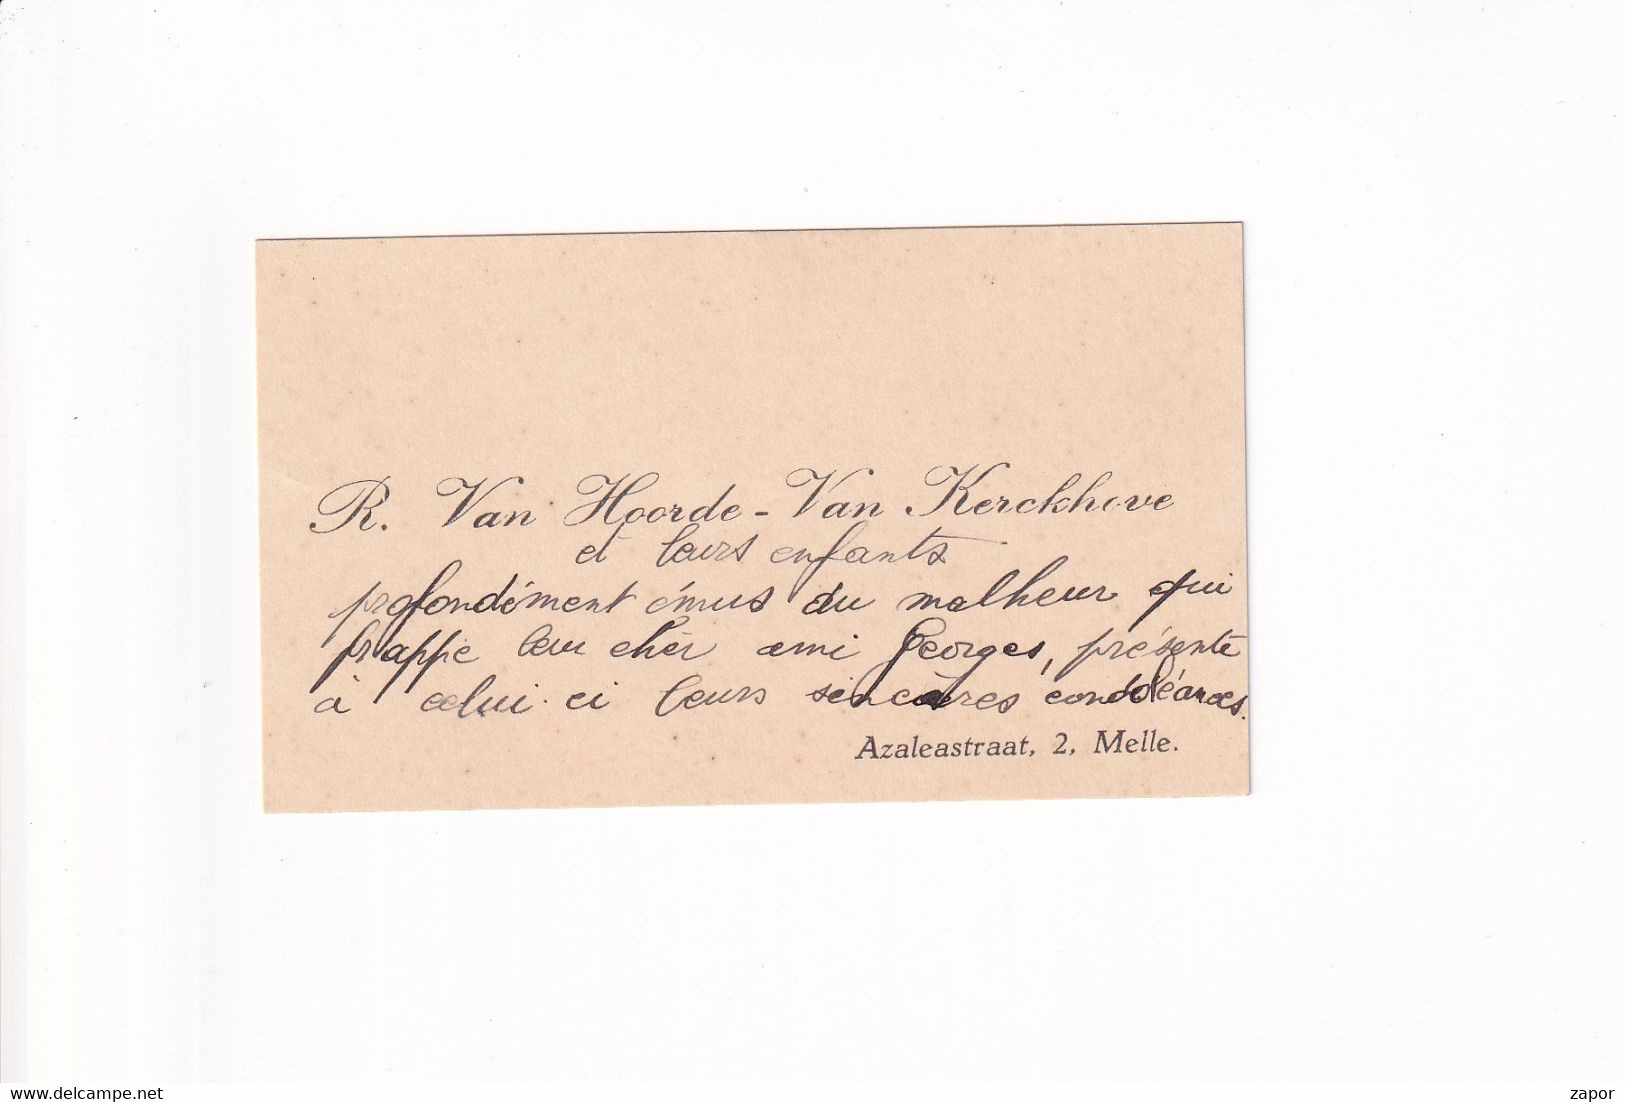 R. Van Hoorde - Van Kerckhove
et leurs enfants
profondément émus du malheur qui
frappe leur chèr ami Georges, présente
à celui-ci leurs sincères condoléances.
Azaleastraat, 2, Melle.
www.delcampe.net
zapor